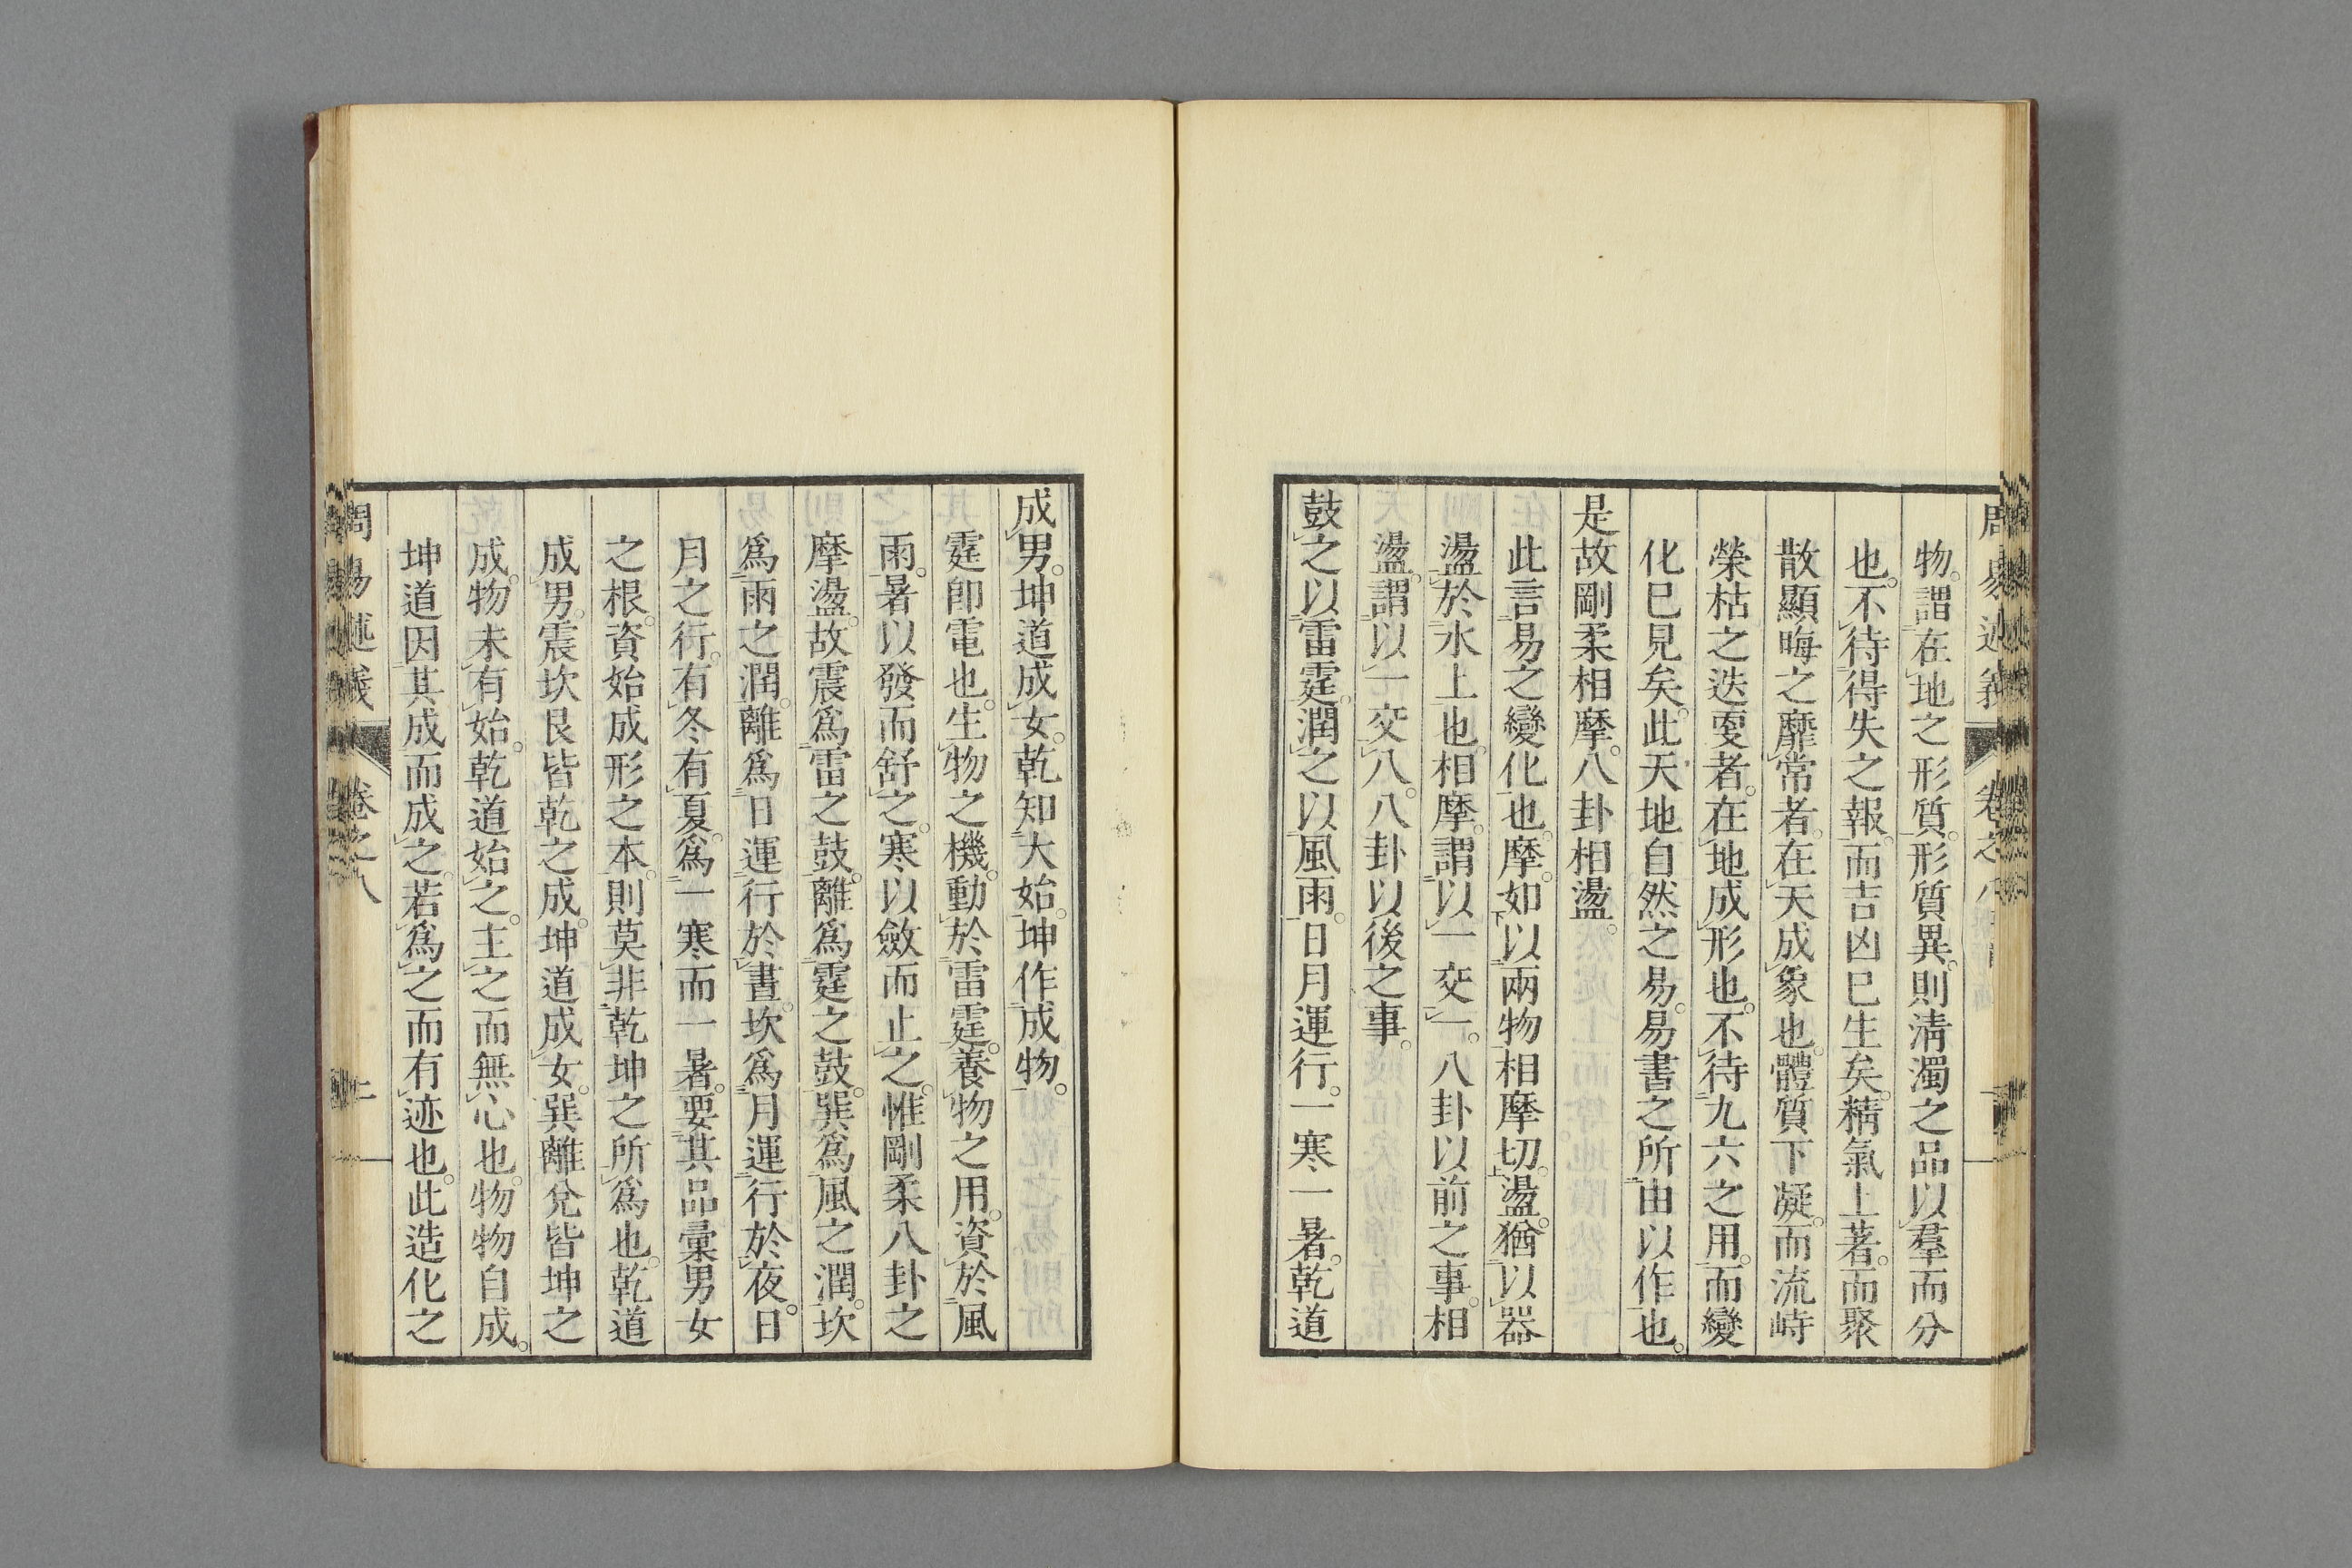 周易述義 卷之八
物。謂在地之形質。形質異。則淸濁之品以羣而分
也。不待得失之報。而吉凶巳生矣。精氣上著。而聚
散顯晦之靡常者。在天成象也。體質下凝。而流峙
榮枯之迭更者。在地成形也。不待九六之用。而變
化巳見矣。此天地自然之易。易書之所由以作也。
是故剛柔相摩。八卦相盪。
此言易之變化也。摩。如以兩物相摩切。盪。猶以器
盪於水上也。相摩。謂以一交一。八卦以前之事。相
盪。謂以一交八。八卦以後之事。
鼓之以雷霆。潤之以風雨。日月運行。一寒一暑。乾道
成男。坤道成女。乾知大始。坤作成物。
霆卽電也。生物之機。動於雷霆。養物之用。資於風
雨。暑以發而舒之。寒以斂而止之。惟剛柔八卦之
摩盪。故震爲雷之鼓。離爲霆之鼓。巽爲風之潤。坎
爲雨之潤。離爲日運行於晝。坎爲月運行於夜。日
月之行。有冬有夏。爲一寒而一暑。要其品彙男女
之根。資始成形之本。則莫非乾坤之所爲也。乾道
成男。震坎艮皆乾之成。坤道成女。巽離兌皆坤之
成。物未有始。乾道始之。主之而無心也。物物自成。
坤道因其成而成之。若爲之而有迹也。此造化之
周易述義 卷之八